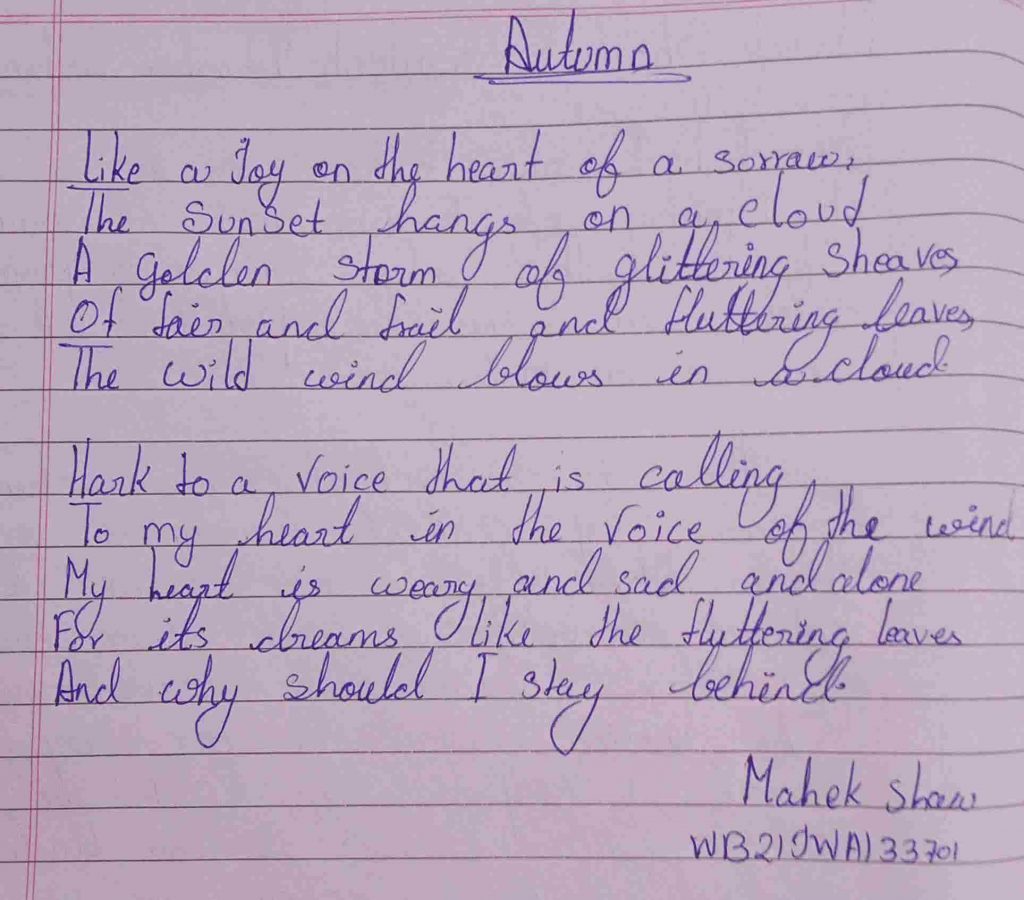 Autumn
Like a Joy on the heart of a sorraw,
The Sunset hangs on a cloud
A golden storm of glittering Sheaves
Of fair and frail and fluttering leaves,
The wild wind blows in a cloud.
Hark to a voice that is calling
To my heart in the voice of the wind
My heart is weary and sad and alone
For its dreams like the fluttering leaves
And why should I stay behind.
Mahek Shaw